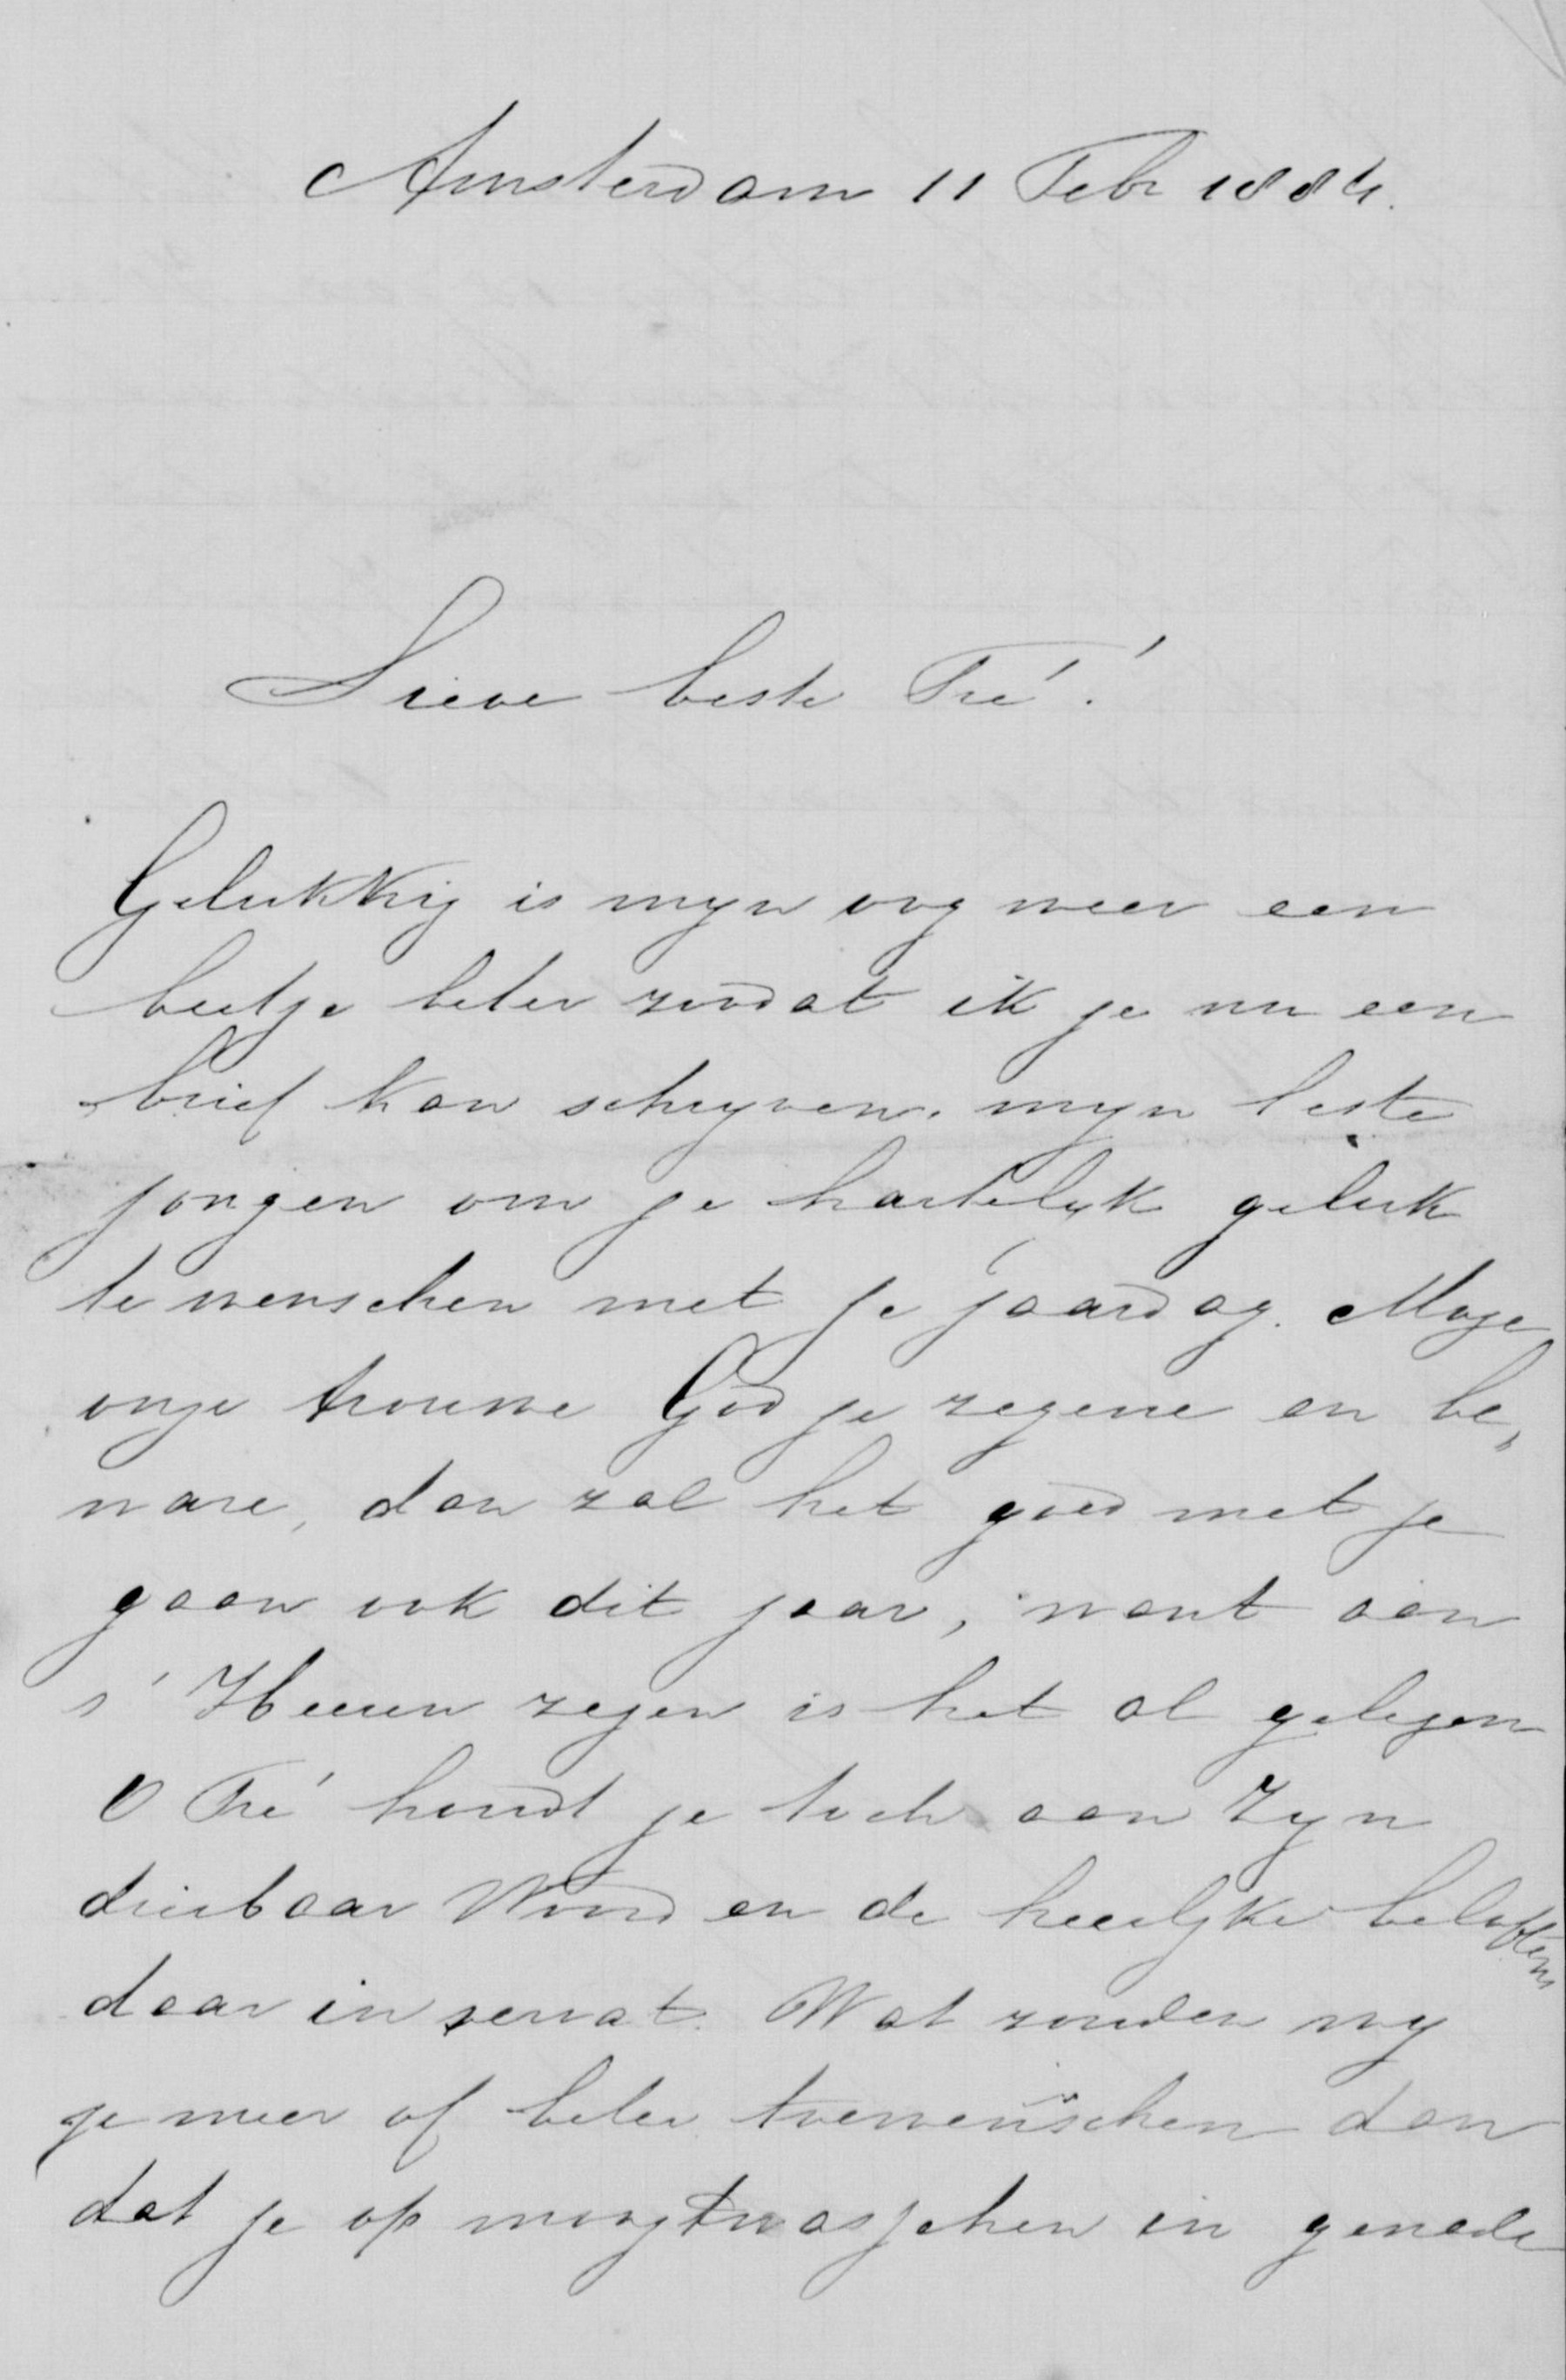 Amsterdam 11 Febr 1884.
Lieve beste Fré!
Gelukkig is myn oog weer een
beetje beter zoodat ik je nu een
brief kan schryven. myn beste
jongen om je hartelyk geluk
te wenschen met je jaardag. Moge
onze trouwe God je zegene en be„
ware, dan zal het goed met je
gaan ook dit jaar, want aan
s' Heeren zegen is het al gelegen
O Fré houdt je toch aan Zyn
dierbaar Woord en de heerlyke beloften
daar in vervat. Wat zouden wy
je meer of beter toewenschen dan
dat je op mogt wasschen in genade